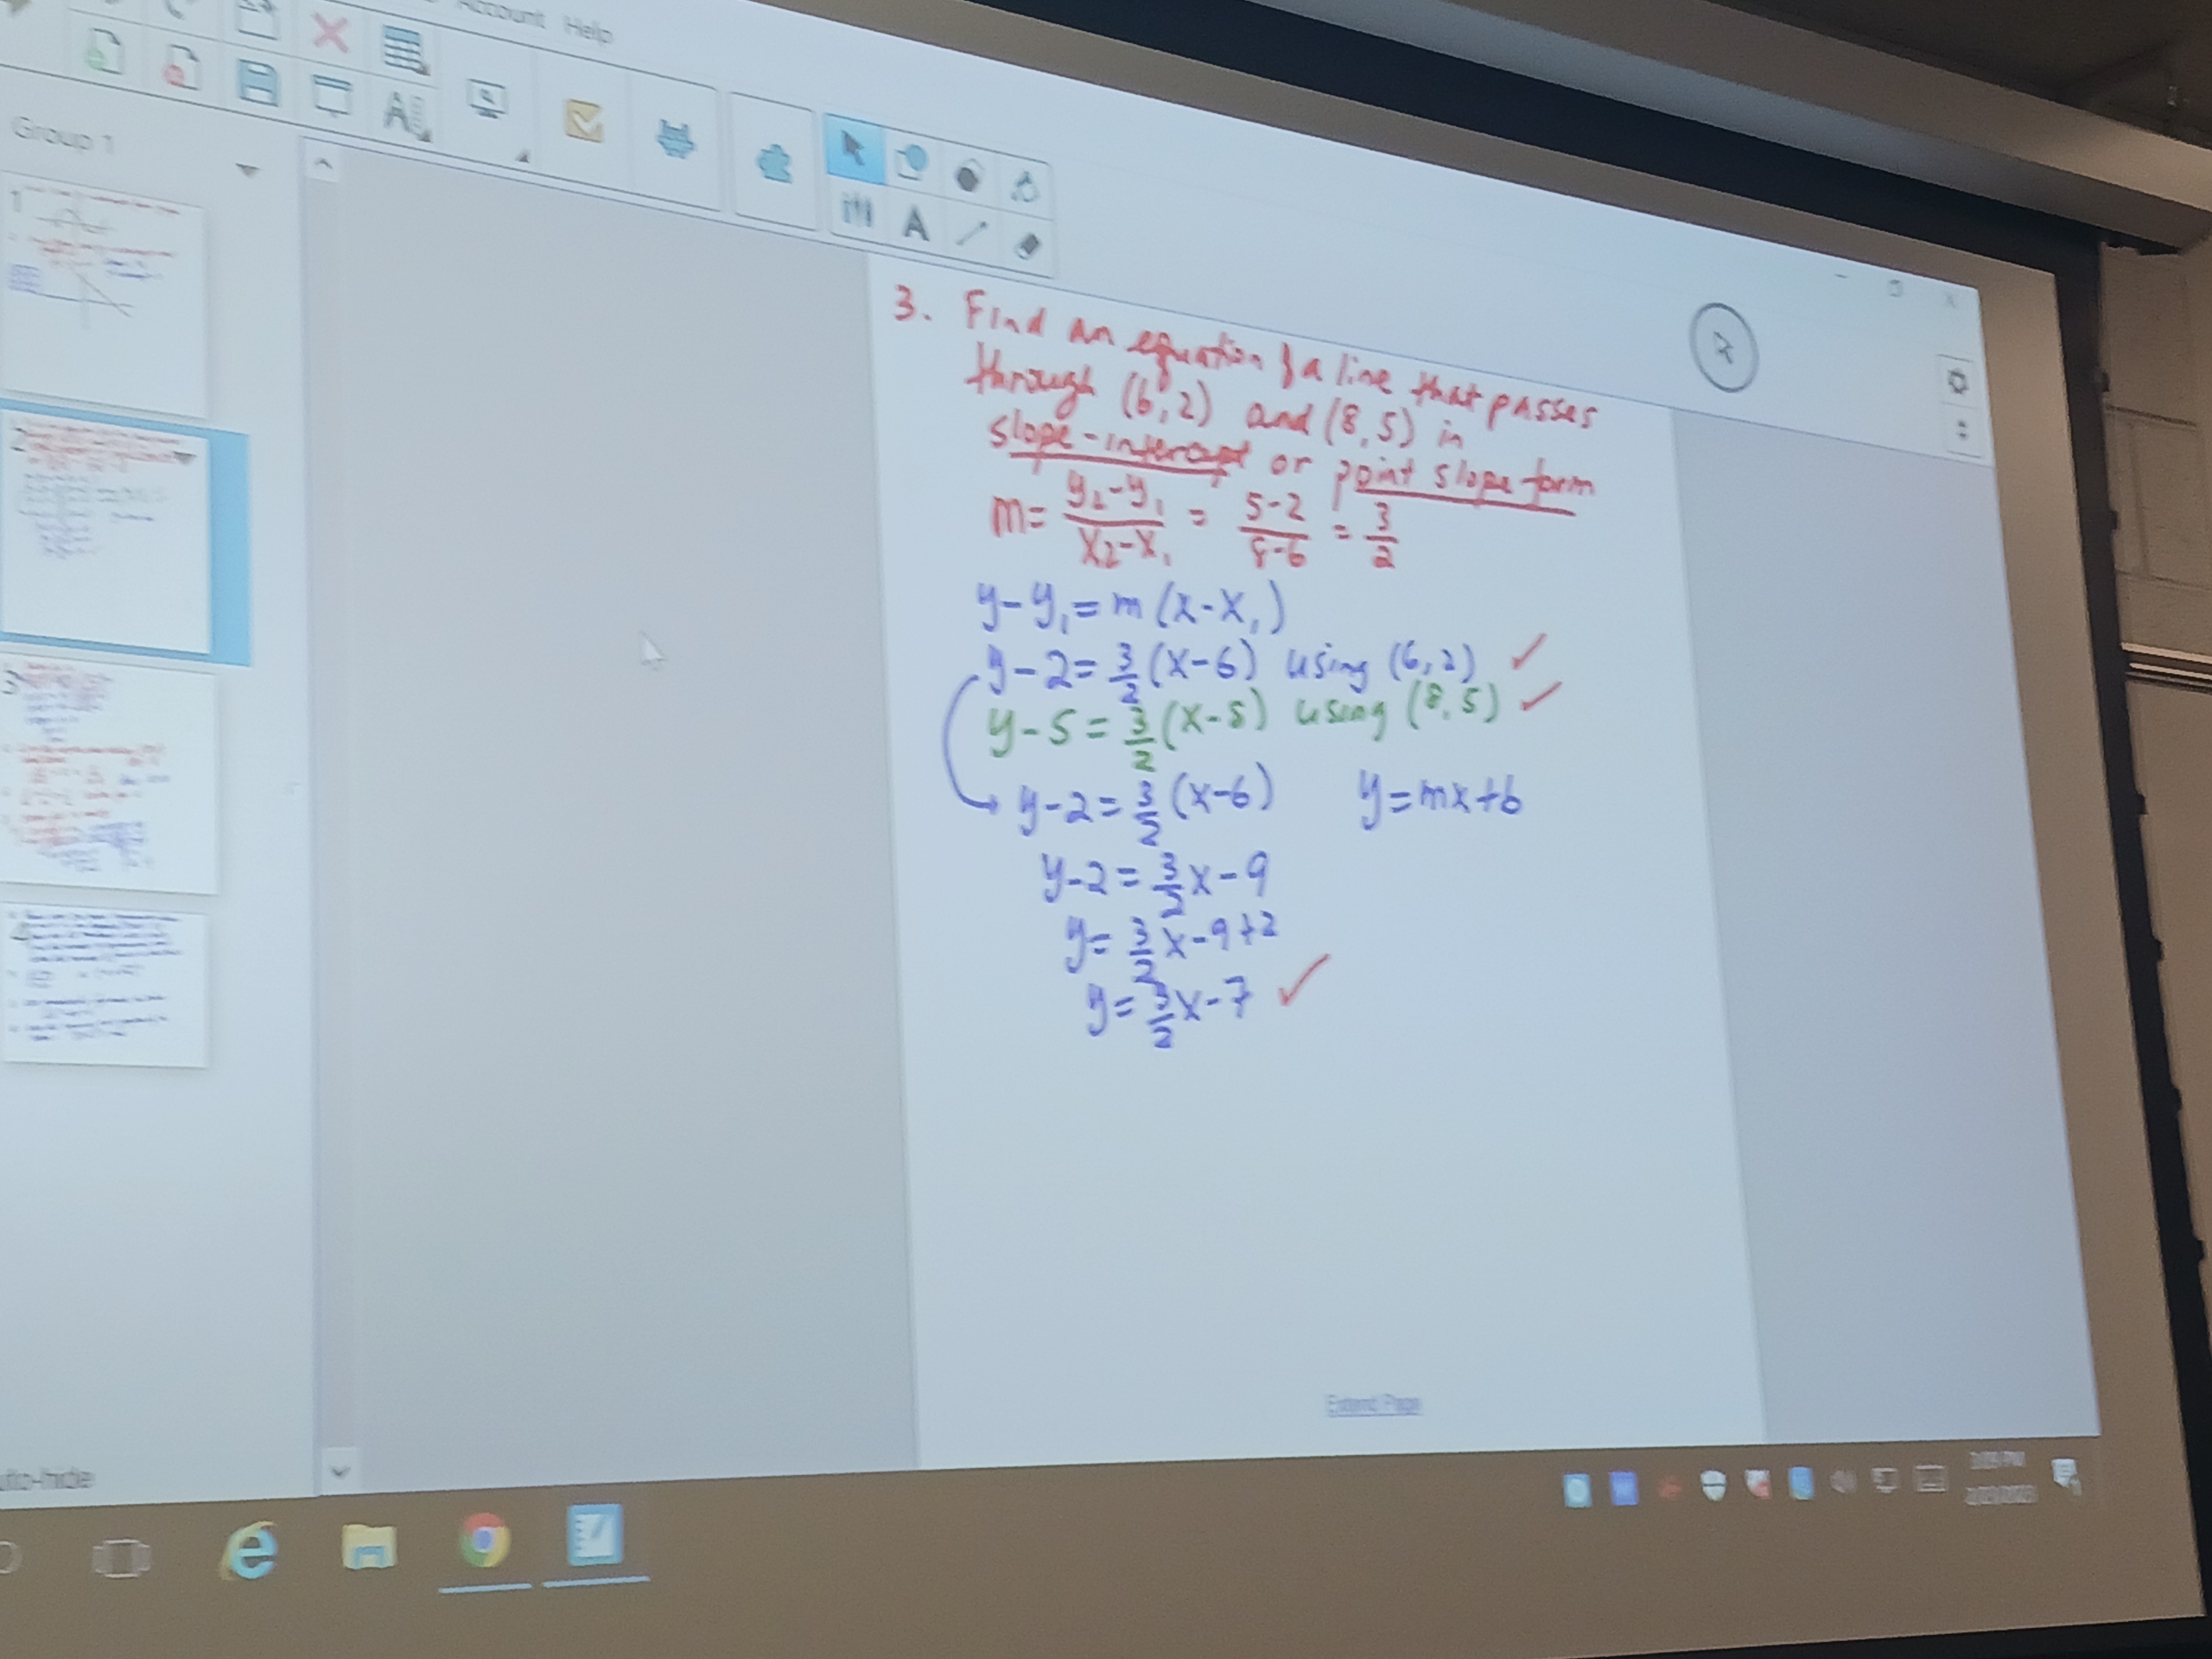 Account Help
Group 1
1
2
3
4
A
3. Find an equation of a line that passes
through (6,2) and (8,5) in
slope-intercept or point slope form
m = y₂-y₁/x₂-x₁ = 5-2/8-6 = 3/2
y-y₁ = m(x-x₁)
y-2 = 3/2(x-6) using (6,2) ✓
y-5 = 3/2(x-8) using (8,5) ✓
y-2 = 3/2(x-6) y=mx+b
y-2 = 3/2x-9
y = 3/2x-9+2
y = 3/2x-7 ✓
Extend Page
uto-hide